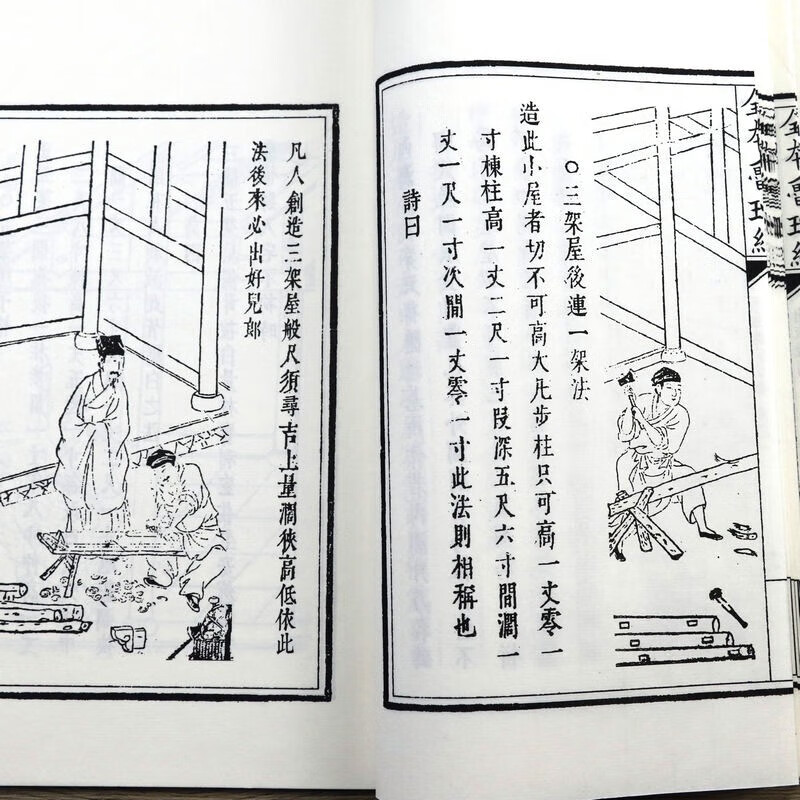 ○三架屋後連一架法
造此小屋者切不可高大凡步柱只可高一丈零一
寸棟柱高一丈二尺一寸叚深五尺六寸間濶一
丈一尺一寸次間一丈零一寸此法則相稱也
詩曰
凡人創造三架屋般尺須尋吉上量濶狹高低依此
法後來必出好兒郎